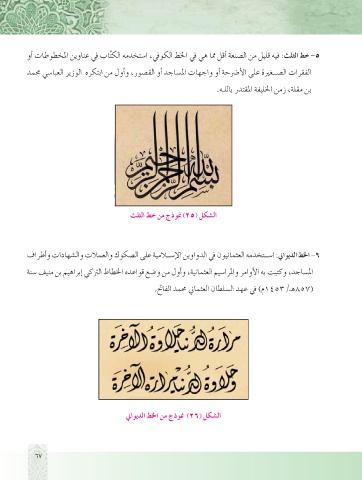 ٥- خط الثلث: فيه قليل من الصنعة أقل مما هي في الخط الكوفي، استخدمه الكتّاب في عناوين المخطوطات أو
الفقرات الصغيرة على الأضرحة أو واجهات المساجد أو القصور، وأول من ابتكره الوزير العباسي محمد
بن مقلة، زمن الخليفة المقتدر بالله.
بسم الله الرحمن الرحيم
الشكل (٢٥) نموذج من خط الثلث
٦- الخط الديواني: استخدمه العثمانيون في الدواوين الإسلامية على الصكوك والعملات والشهادات وأطراف
المساجد، وكتبت به الأوامر والمراسيم العثمانية، وأول من وضع قواعده الخطاط التركي إبراهيم بن منيف سنة
(٨٥٧هـ/ ١٤٥٣م) في عهد السلطان العثماني محمد الفاتح.
مرارة الدنيا حلاوة الآخرة
وحلاوة الدنيا مرارة الآخرة
الشكل (٢٦) نموذج من الخط الديواني
٦٧